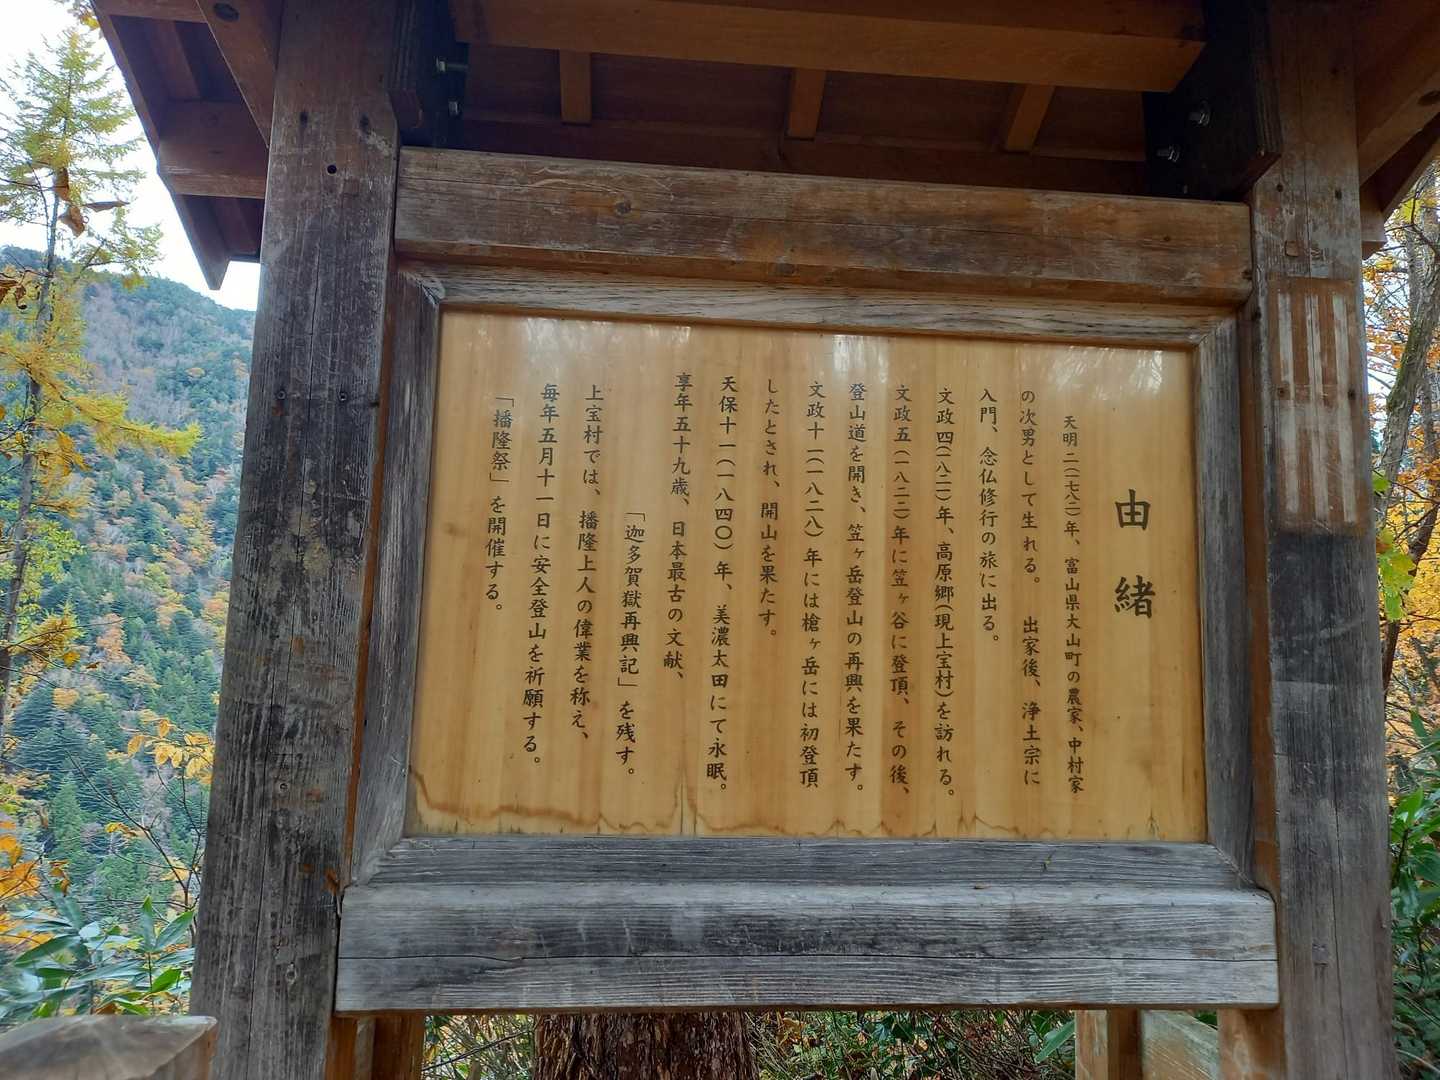 由緒
天明二(一七八二)年、富山県大山町の農家、中村家
の次男として生れる。　出家後、浄土宗に
入門、念仏修行の旅に出る。
文政四(一八二一)年、高原郷(現上宝村)を訪れる。
文政五(一八二二)年に笠ヶ谷に登頂、その後、
登山道を開き、笠ヶ岳登山の再興を果たす。
文政十一(一八二八)年には槍ヶ岳には初登頂
したとされ、開山を果たす。
天保十一(一八四〇)年、美濃太田にて永眠。
享年五十九歳、日本最古の文献、
「迦多賀獄再興記」を残す。
上宝村では、播隆上人の偉業を称え、
毎年五月十一日に安全登山を祈願する。
「播隆祭」を開催する。